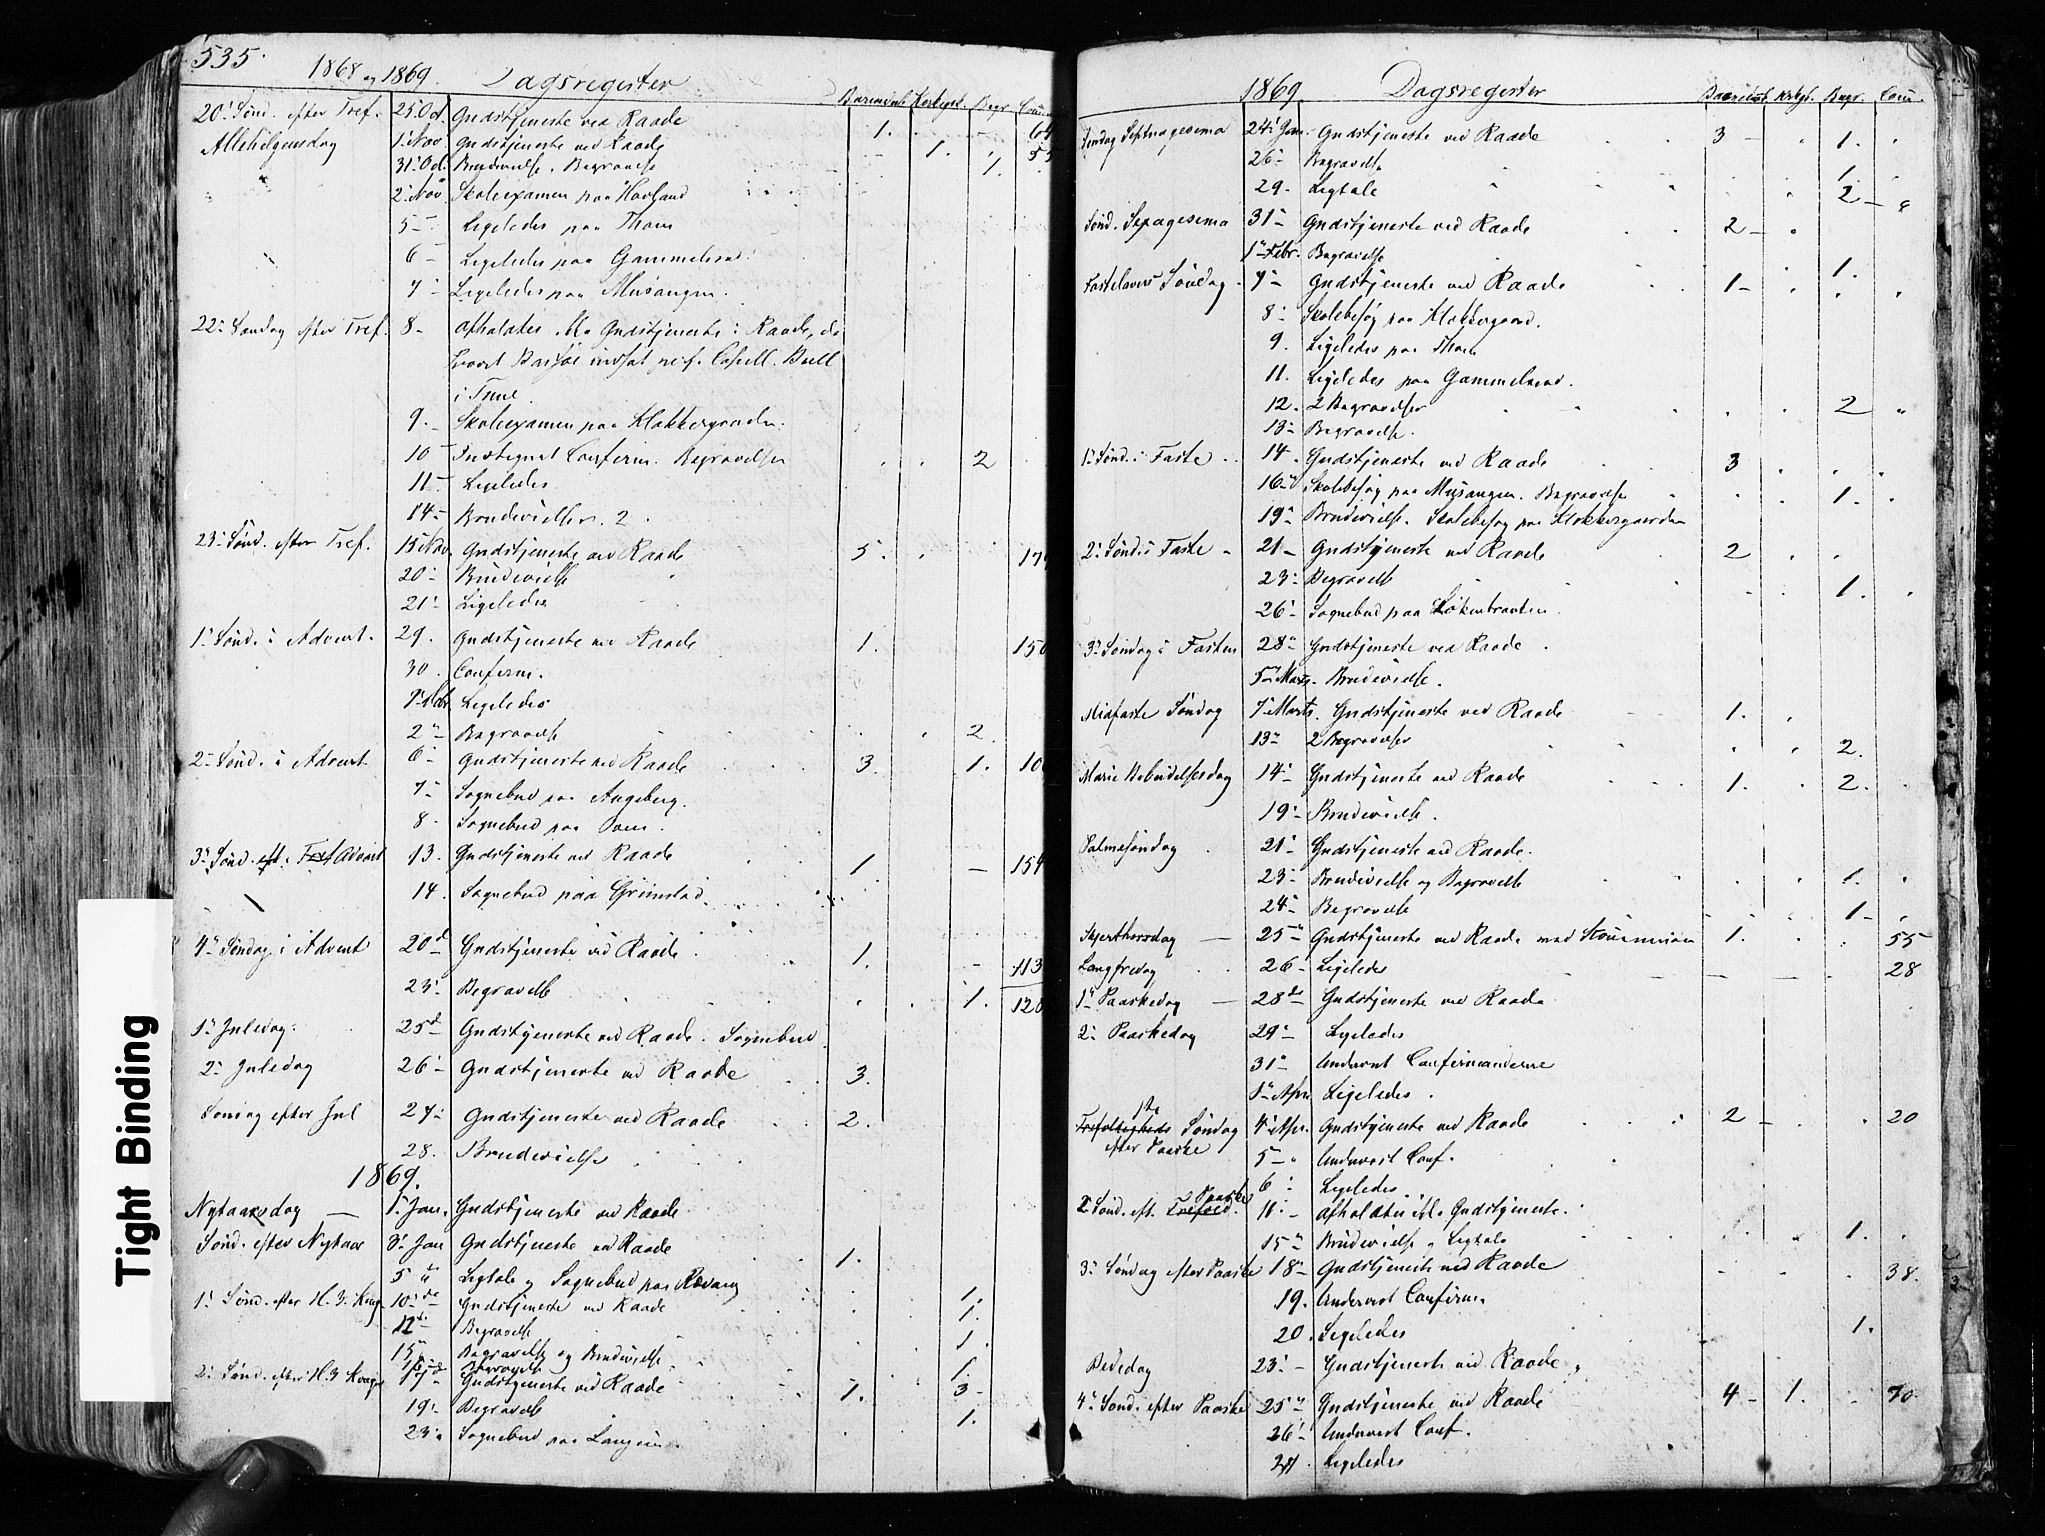 535.
1868 og 1869. Dagsregister
Barnedaab Kirkegt. Begr. Comm
20. Sønd. efter Tref. 25 Oct. Gudstjeneste ved Raade 1. 64
Allehelgensdag 1. Nov Gudstjeneste ved Raade 1. 55
31. Oct. Brudevielse. Begravelse 1.
2. Nov Skoleexamen paa Havland
5 - Ligeledes paa Thom
6 - Ligeledes paa Gammelsrud
7 - Ligeledes paa Musangen.
22. Søndag efter Tref. 8 - afholdtes Gudstjeneste i Raade, da
i Tune
9. - Skoleexamen paa Klokkergaarden.
10 - Confirm. Begravelser 2
11 - Ligeledes
14 - Brudevielser. 2.
23. Sønd. efter Tref. 15 Nov. Gudstjeneste ved Raade 5. 174
20 - Brudevielse
21 - Ligeledes
1. Sønd. i Advent. 29. Gudstjeneste ved Raade 1. 150
30. Confirm.
Ligeledes
2 - Begravelse 2.
2. Sønd. i Advent 6 - Gudstjeneste ved Raade 3. 1. 100
7 - Sognebud paa Augeberg.
8 - Sognebud paa
3. Sønd. Advent 13. Gudstjeneste ved Raade 1. 154
14. Sognebud paa Grimstad.
4. Søndag i Advent 20 d Gudstjeneste ved Raade 1. 113
23. Begravelse 1. 120
1. Juledag. 25 d Gudstjeneste ved Raade. Sognebud
2. Juledag 26 - Gudstjeneste ved Raade 3.
Søndag efter Jul 27 - Gudstjeneste ved Raade 2.
28. Brudevielse
1869.
Nytaarsdag 1. Jan. Gudstjeneste ved Raade
Sønd. efter Nytaar 3. Jan Gudstjeneste ved Raade 1.
5 Ligtale og Sognebud paa
1. Sønd. efter H. 3. Kong. 10 de Gudstjeneste ved Raade 1.
12 Begravelse 1.
15 Begravelse og Brudevielse 1.
16 Begravelse 1.
2. Sønd. efter H. 3 Konger 17 Gudstjeneste ved Raade 1. 3
19. Begravelse 1.
23. Sognebud paa
Tight Binding
1869 Dagsregister
Barnedaab. Kirkgt. Begr. Com.
Søndag Septuagesema 24. Jan. Gudstjeneste ved Raade 3 1.
26 - Begravelse 1.
29. Ligtale 2
Sønd. Sexagesema 31 - Gudstjeneste ved Raade 2
1 - Febr. Begravelse 1.
Fastelavns Søndag 7 - Gudstjeneste ved Raade 1
8 - Skolebesøg paa Klokkergaard.
9. Ligeledes paa Thom
11. Ligeledes paa Gammelsrud.
12. 2 Begravelser 2
13 - Begravelse.
1. Sønd. i Faste 14. Gudstjeneste ved Raade 3
16 Skolebesøg paa Musangen. Begravelse 1.
19 Brudevielse. Skolebesøg paa Klokkergaarden
2. Sønd. i Faste 21 - Gudstjeneste ved Raade 2
23 - Begravelse 1.
26 - Sognebud paa
3. Søndag i Fasten 28 Gudstjeneste ved Raade
5 Marts. Brudevielse.
Midfaste Søndag 7. Marts. Gudstjeneste ved Raade 1.
13 2 Begravelser 2.
Marie Bebudelsesdag 14 - Gudstjeneste ved Raade 1. 2.
19 - Brudevielse.
Palmesøndag 21 - Gudstjeneste ved Raade.
23 - Brudevielse og Begravelse 1.
24 - Begravelse 1
Skjærthorsdag 25 Gudstjeneste ved Raade med 1. 55
Langfredag 26 - Ligeledes 28
1. Paaskedag 28 de Gudstjeneste ved Raade
2. Paaskedag 29 - Ligeledes
31 Undervist Confirmanderne
1 Apr. Ligeledes.
1ste
Trefoltigheds Søndag 4. Apr. Gudstjeneste ved Raade 2 20
efter Paaske 5 - Undervist Conf.
6 - Ligeledes
Paaske
2 Sønd. eft. Trefold. 11. - afholdtes Gudstjeneste.
15 Brudevielse og Ligtale 1.
3. Søndag efter Paaske 18 Gudstjeneste ved Raade 38.
19. Undervist Confirm.
20. Ligeledes 1.
Bededag 23. - Gudstjeneste ved Raade
4. Sønd. efter Paaske 25 Gudstjeneste ved Raade 4 1. 70
26 Undervist Conf.
27 Ligeledes